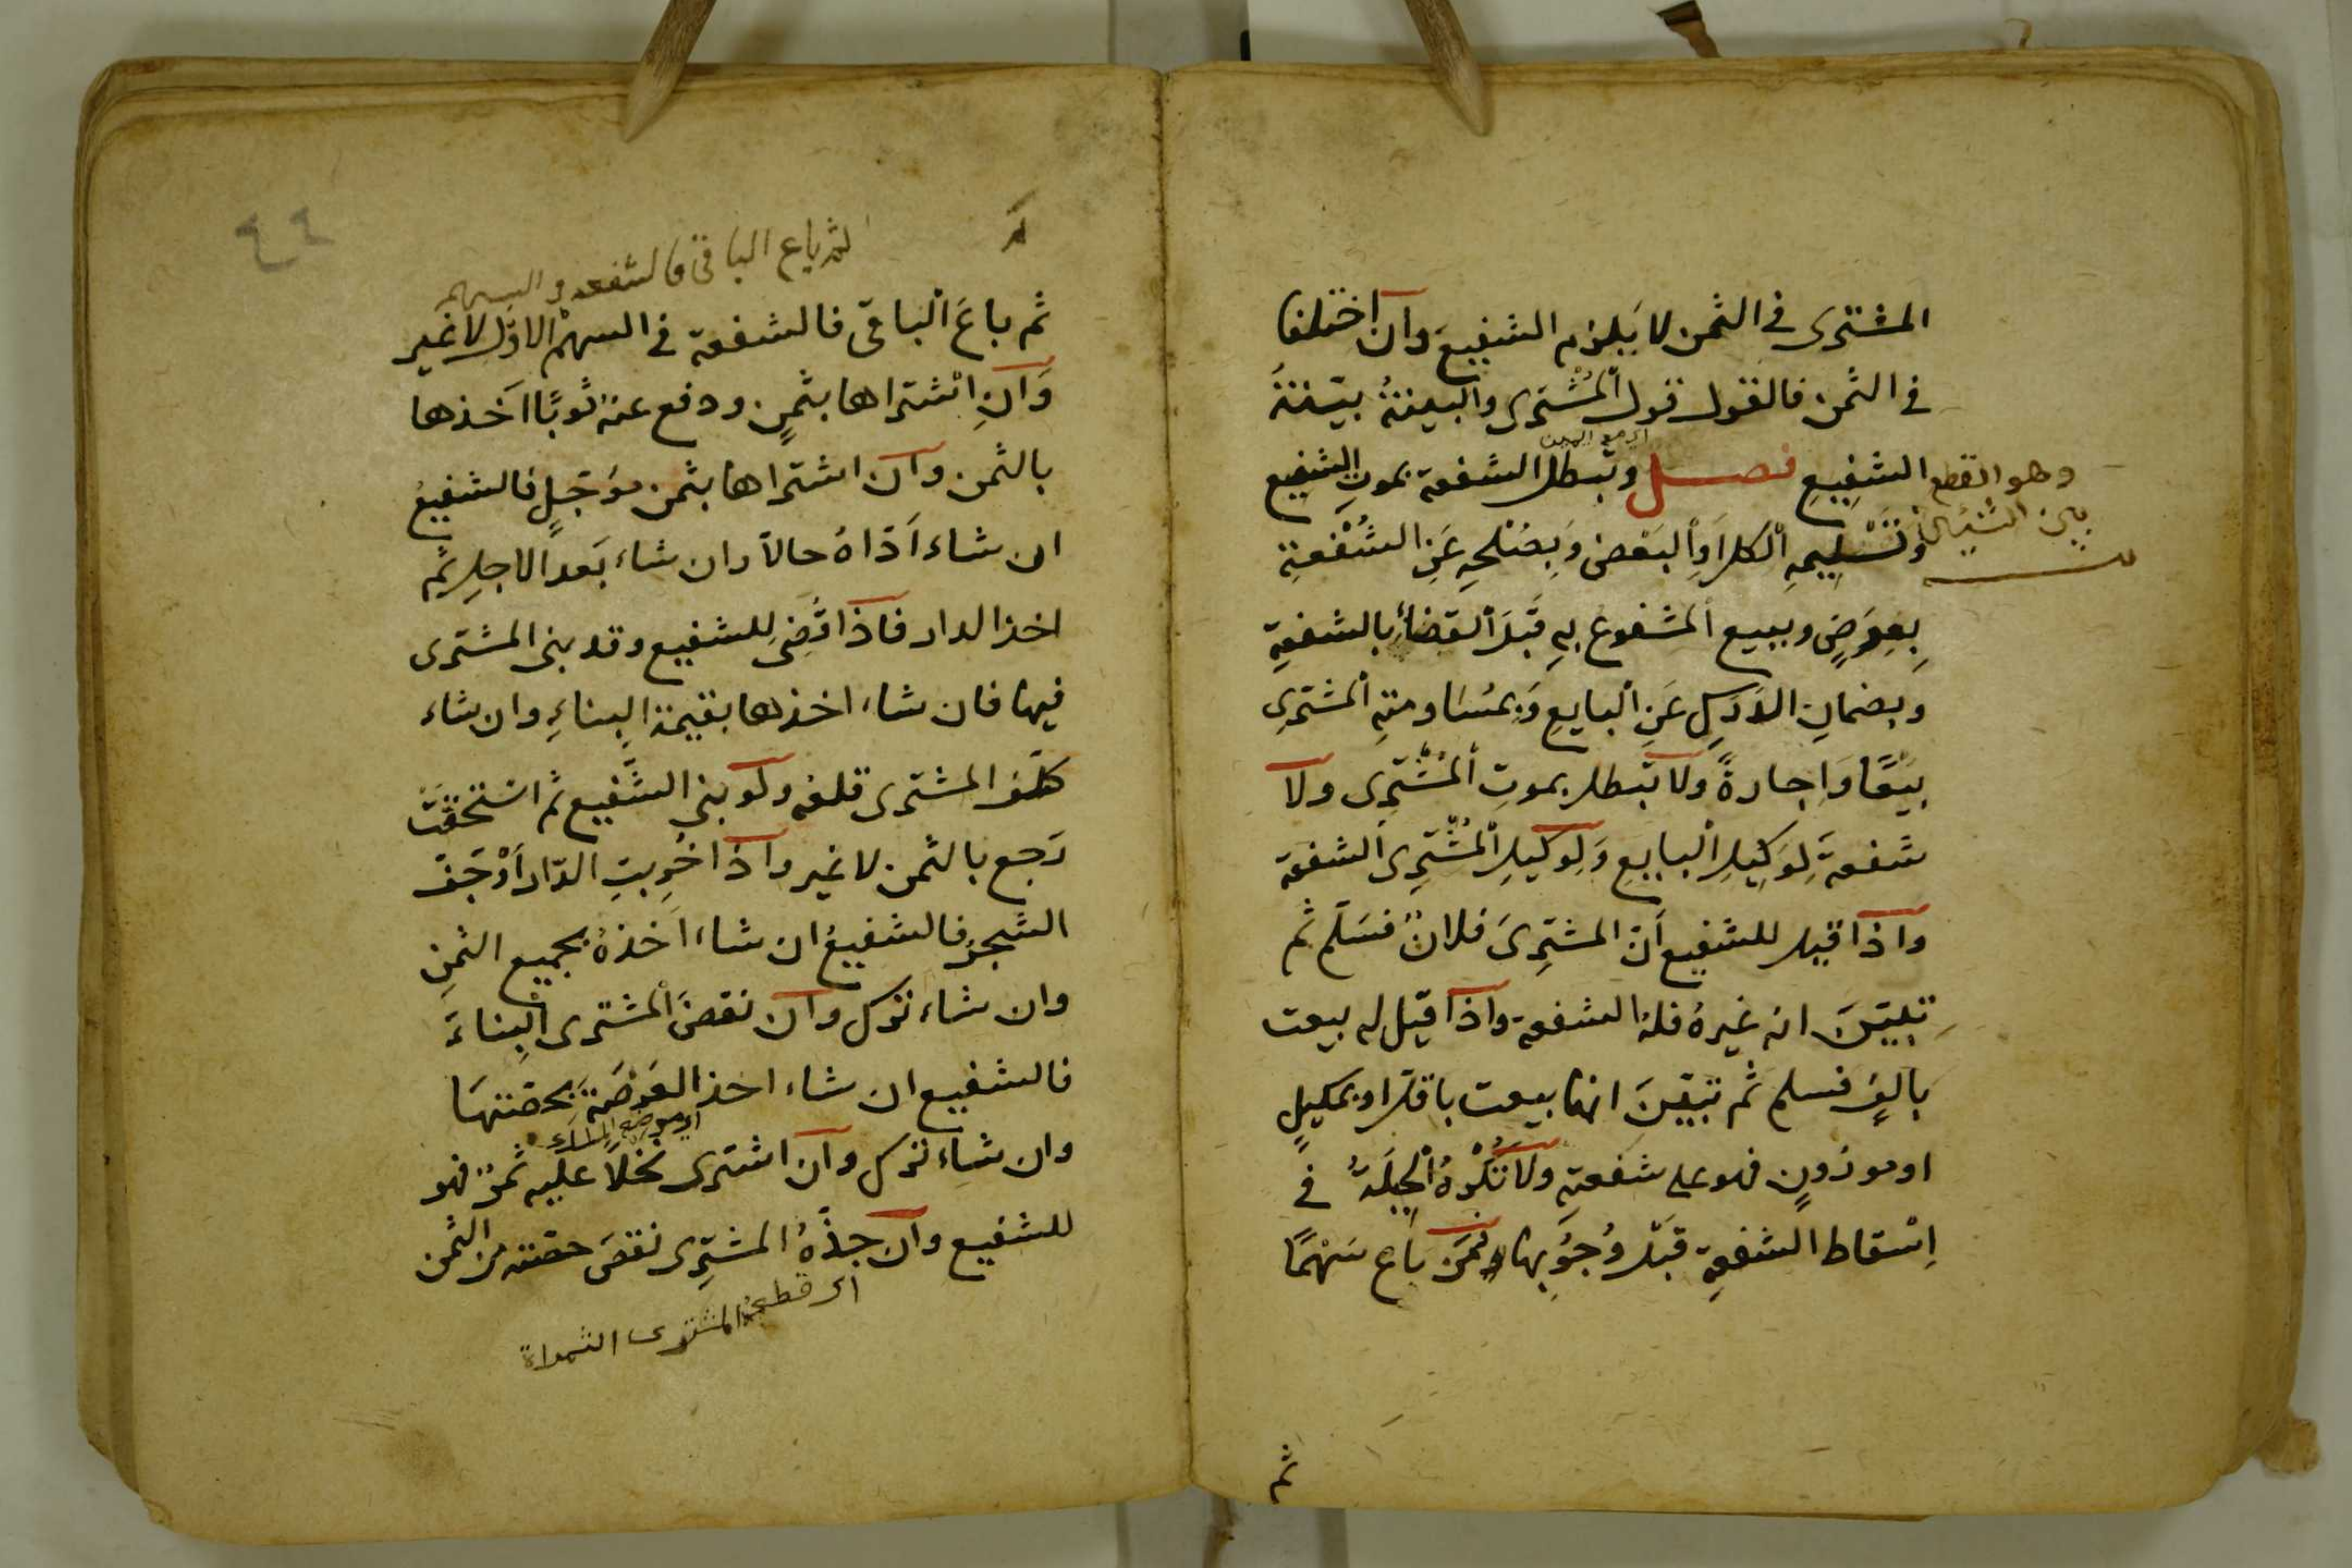 المشترى فى الثمن لا يَلزم الشفيعَ وان اختلفا
فى الثمن فالقول قول المُشترى والبينةُ بيّنةُ
الشفِيعِ فصل وتبطل الشفعة بموتِ الشفيع
وتَسْلِيمِهِ الكلَ أو البَعضَ وَبِصُلحِهِ عَنِ الشُفْعَةِ
بِعِوَضٍ وببيع المشفوع بِهِ قَبلَ القضاءِ بالشفعةِ
وبضمانِ الدَرَكِ عَنِ البايعِ وَبِمُسَاومتِهِ المشترى
بَيْعًا وَاِجارةً ولا تبطل بموتِ المُشْتَرِى ولا
شفعةَ لِوَكِيلِ البايعِ وَلِوكيلِ المُشْتَرِى الشفعة
واذا قيل للشفيع أنّ المشتَرِىَ فلانٌ فسَلّم ثم
تبيّنَ انه غيرهُ فله الشفعة واذا قيل له بيعت
بالفٍ فسلم ثم تبيّنَ انها بيعت باقلّ او بمكيلٍ
او موزونٍ فهو على شفعتِهِ ولا تُكْرَهُ الحِيلَةُ فى
اِسْقاط الشفعةِ قبلَ وُجُوبِها ومَن باع سَهْمًا
وهو القطع
بين الشيئين
اى مع اليمين
ثم
٤٤
ثم باع الباقى فالشفعة فى السهم
ثم باعَ البَاقى فالشفعة فى السهم الاوّل لا غير
وَان اشتراها بثمنٍ ودفع عنه ثوبًا اَخذها
بالثمن وان اشتراها بثمن مؤجّلٍ فالشفيعُ
ان شاء اَدّاهُ حالاً وان شاء بَعد الاجلِ ثم
اخذ الدار فاذا قُضِى لِلشفيع وقد بنى المشترى
فيها فان شاء اخذها بقيمة البِناءِ وان شاء
كلّف المشترى قلعه ولو بنى الشّفيع ثم استحقّت
رَجع بالثمن لا غير واذا خرِبتِ الدّار اَوْ جَفّ
الشجرُ فالشفيعُ ان شاء اَخذهُ بجميع الثمنِ
وان شاء تركَ وان نقضَ المشترى البِناءَ
فالشفيع ان شاء اخذ العَرْصَةَ بحصّتهَا
وان شاء ترك وان اشترى نخلًا عليه ثمرٌ فهو
للشفيع وان جذّهُ المشتَرِى نقصَ حصّته من الثمن
اى موضع البناء
اى قطع المشترى الثمرة